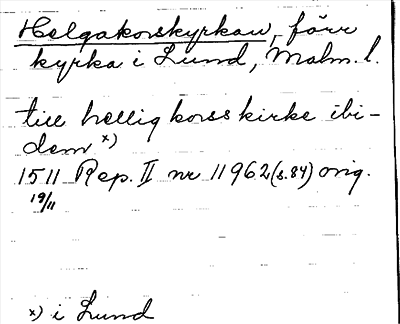 Helgakorskyrkan, förr
kyrka i Lund, Malm. l.
till hellig korss kirke ibi-
dem x)
1511 Rep. II nr 11962 (s. 84) orig.
19/11
x) i Lund